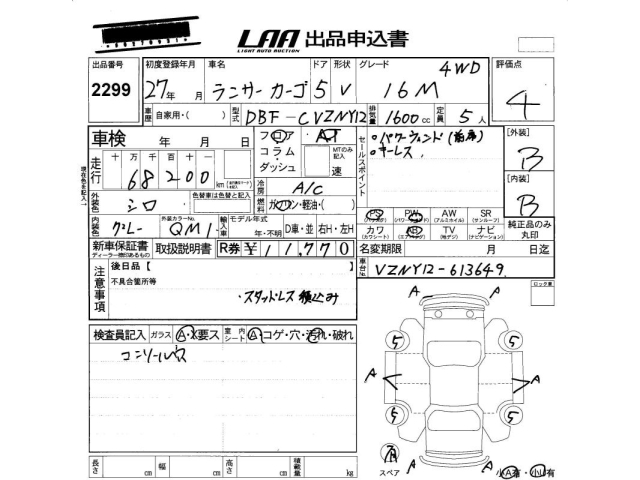 LAA 出品申込書
LIGHT AUTO AUCTION
出品番号 初度登録年月 車名 ドア 形状 グレード 4WD 評価点
2299 27年 月 ランサーカーゴ 5 V 16M 4
車歴 自家用・( ) 型式 DBF-CVZNY12 排気量 1600cc 定員 5人
車検 年 月 日 フロア AT セールスポイント ・パワーウィンド(前席) [外装]
コラム・ MTのみ記入 ・キーレス B
ダッシュ 速
走行 十 万 千 百 十
68200 km 冷房 A/C [内装]
現在色を記入
外装色 シロ 色替車は色替と記入 燃料 ガソリン・軽油・( ) PS PW AW SR B
(パワステ) (パワーウィンドウ) (アルミホイル) (サンルーフ)
内装色 グレー 外装カラーNo. QM1 輸入車 モデル年式 年・不明 D車・並 右H・左H カワ AB TV ナビ 純正品のみ丸印
(カワシート) (エアバッグ) (地デジ) (ナビゲーション)
新車保証書 取扱説明書 R券 ¥11,770 名変期限 月 日迄
ディーラー捺印あるもの
車台No. VZNY12-613649
注意事項 後日品【 ロック者
不具合箇所等
・スタッドレス積込み
検査員記入 ガラス A・X要ス 室内シート A・コゲ・穴・汚れ・破れ
A
5 5
A A
5 5
スペア A 小A有・小U有
長さ cm 幅 cm 高さ cm 積載量 kg